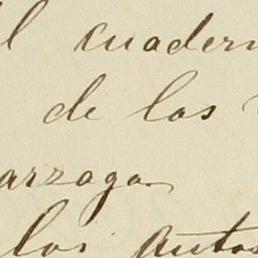 l cuadern
de las
arzaga
los Autos